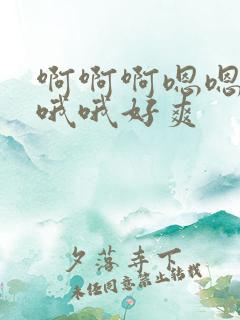 啊啊啊嗯嗯
哦哦好爽
夕落亭下
未经同意禁止转载